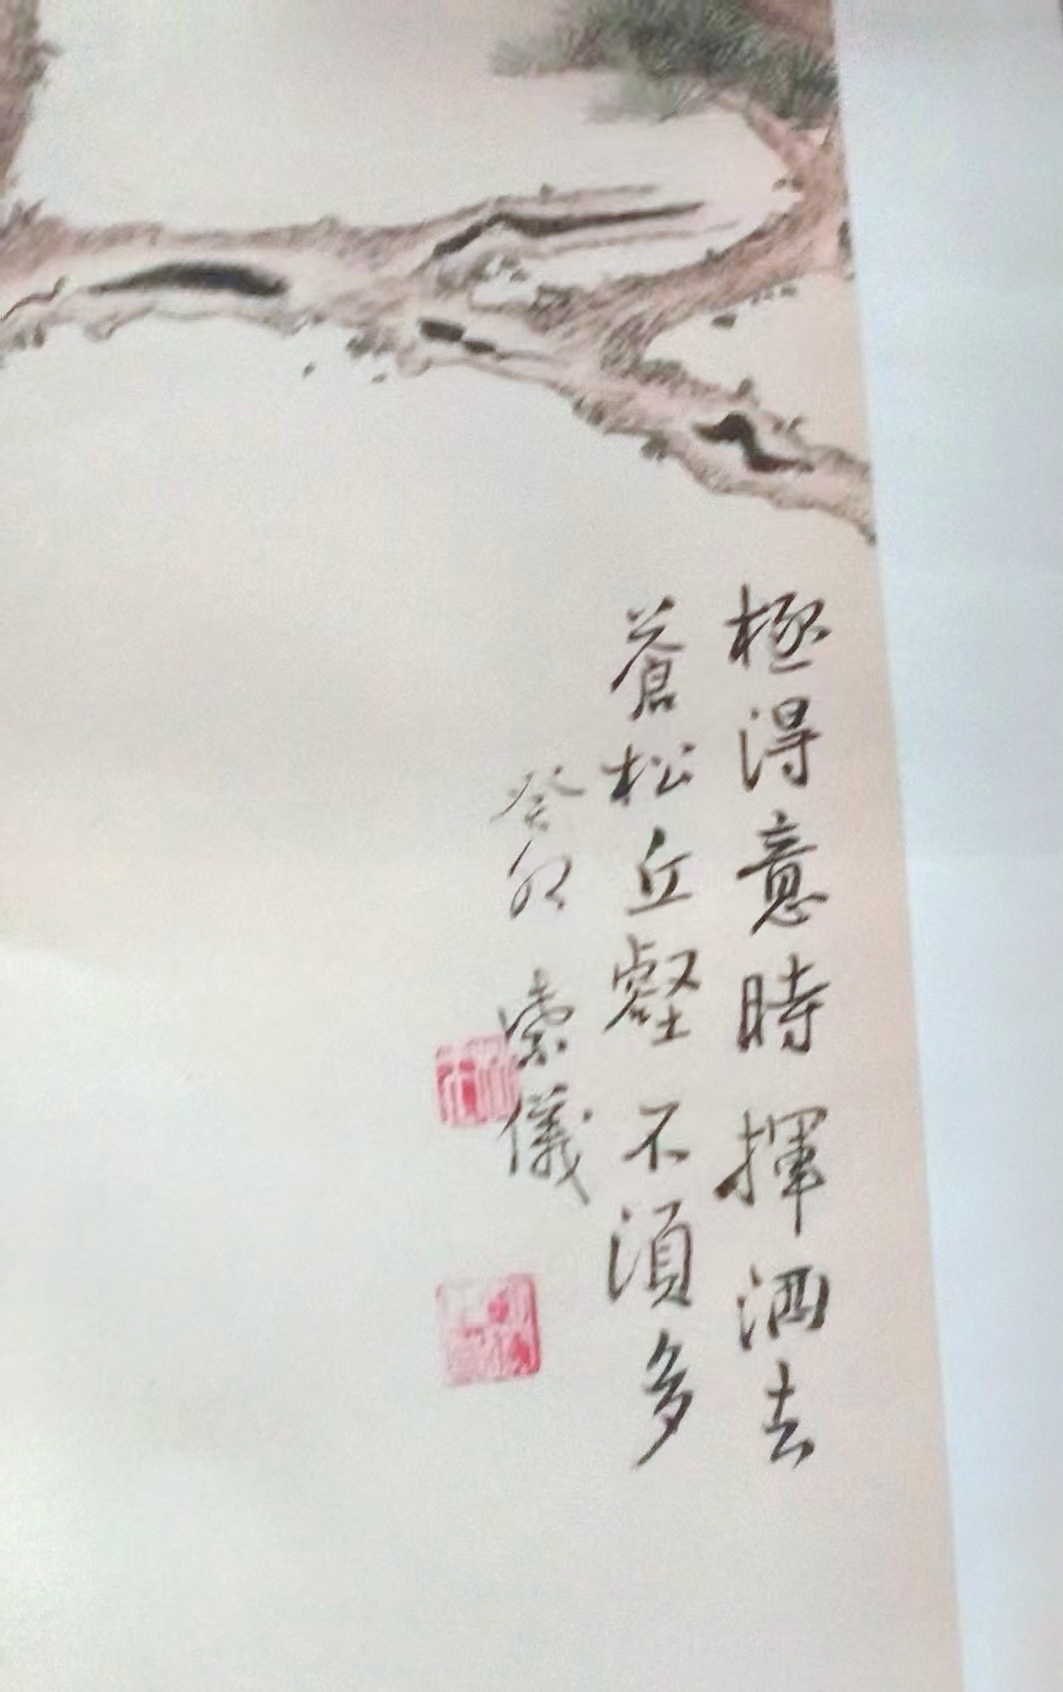 極得意時揮洒去
蒼松丘壑不須多
癸卯 索儀